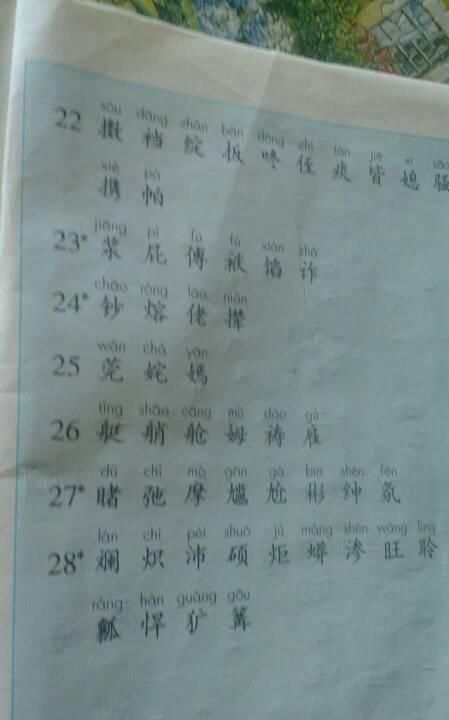 sǒu dāng zhàn bān dōng zhí tán jiē xí sāo
22 擞 裆 绽 扳 咚 侄 痰 皆 媳 骚
xié pà
携 帕
jiāng pì fù fú xiàn zhà
23* 浆 屁 傅 袱 馅 诈
chāo róng lǎo niǎn
24* 钞 熔 佬 撵
wǎn chà yān
25 莞 姹 嫣
tǐng shāo cāng mǔ dǎo gù
26 艇 艄 舱 姆 祷 雇
dǔ chí mó gān gà bīn shēn fēn
27* 睹 弛 摩 尴 尬 彬 绅 氛
lán chì pèi shuò jù mǎng shèn wàng líng
28* 斓 炽 沛 硕 炬 蟒 渗 旺 聆
ráng hàn guǎng gōu
瓤 悍 犷 篝